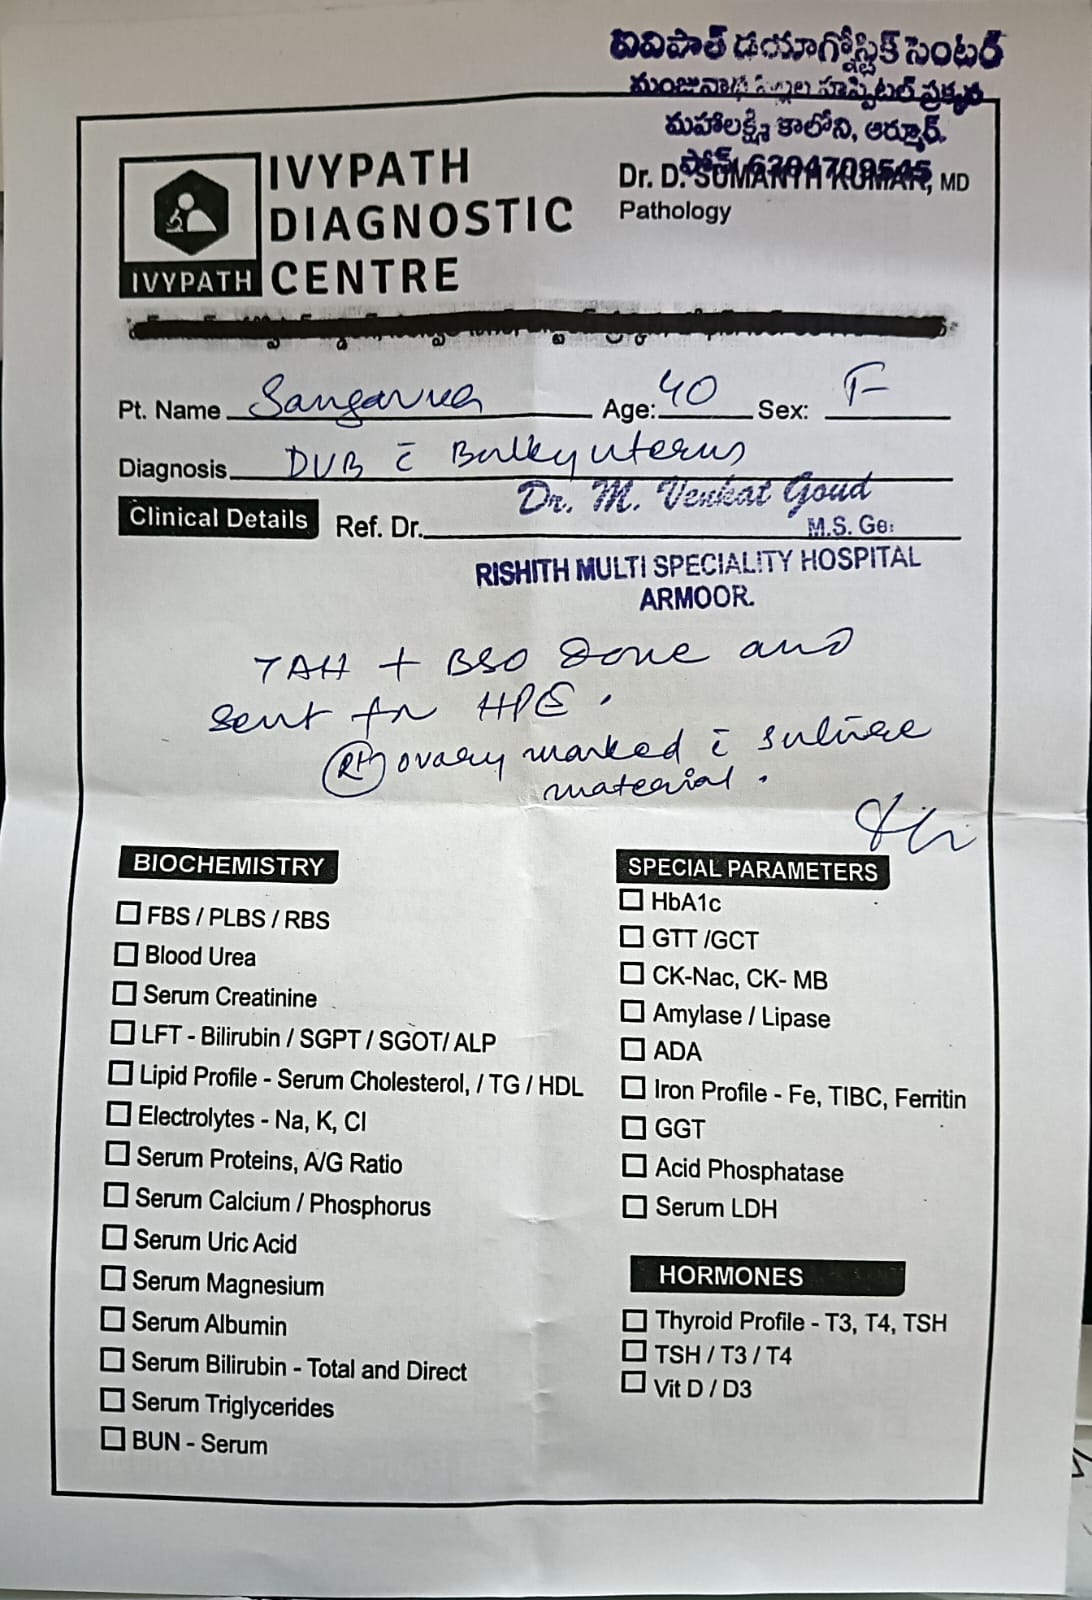 ఐవిపాత్ డయాగ్నోస్టిక్ సెంటర్
మంజునాథ పిల్లల హాస్పిటల్ ప్రక్కన
మహాలక్ష్మి కాలోని, ఆర్మూర్.
ఫోన్: 6304709545
IVYPATH
DIAGNOSTIC
CENTRE
IVYPATH
Dr. D. SUMANTH KUMAR, MD
Pathology
Pt. Name Age: 40 Sex: F
Diagnosis DUB c̄ Bulky uterus
Clinical Details Ref. Dr. Dr. M. Venkat Goud
M.S. Ge:
RISHITH MULTI SPECIALITY HOSPITAL
ARMOOR.
TAH + BSO Done and
sent for HPE.
Rt ovary marked c̄ suture
material.
BIOCHEMISTRY
FBS / PLBS / RBS
Blood Urea
Serum Creatinine
LFT - Bilirubin / SGPT / SGOT/ ALP
Lipid Profile - Serum Cholesterol, / TG / HDL
Electrolytes - Na, K, Cl
Serum Proteins, A/G Ratio
Serum Calcium / Phosphorus
Serum Uric Acid
Serum Magnesium
Serum Albumin
Serum Bilirubin - Total and Direct
Serum Triglycerides
BUN - Serum
SPECIAL PARAMETERS
HbA1c
GTT /GCT
CK-Nac, CK- MB
Amylase / Lipase
ADA
Iron Profile - Fe, TIBC, Ferritin
GGT
Acid Phosphatase
Serum LDH
HORMONES
Thyroid Profile - T3, T4, TSH
TSH / T3 / T4
Vit D / D3